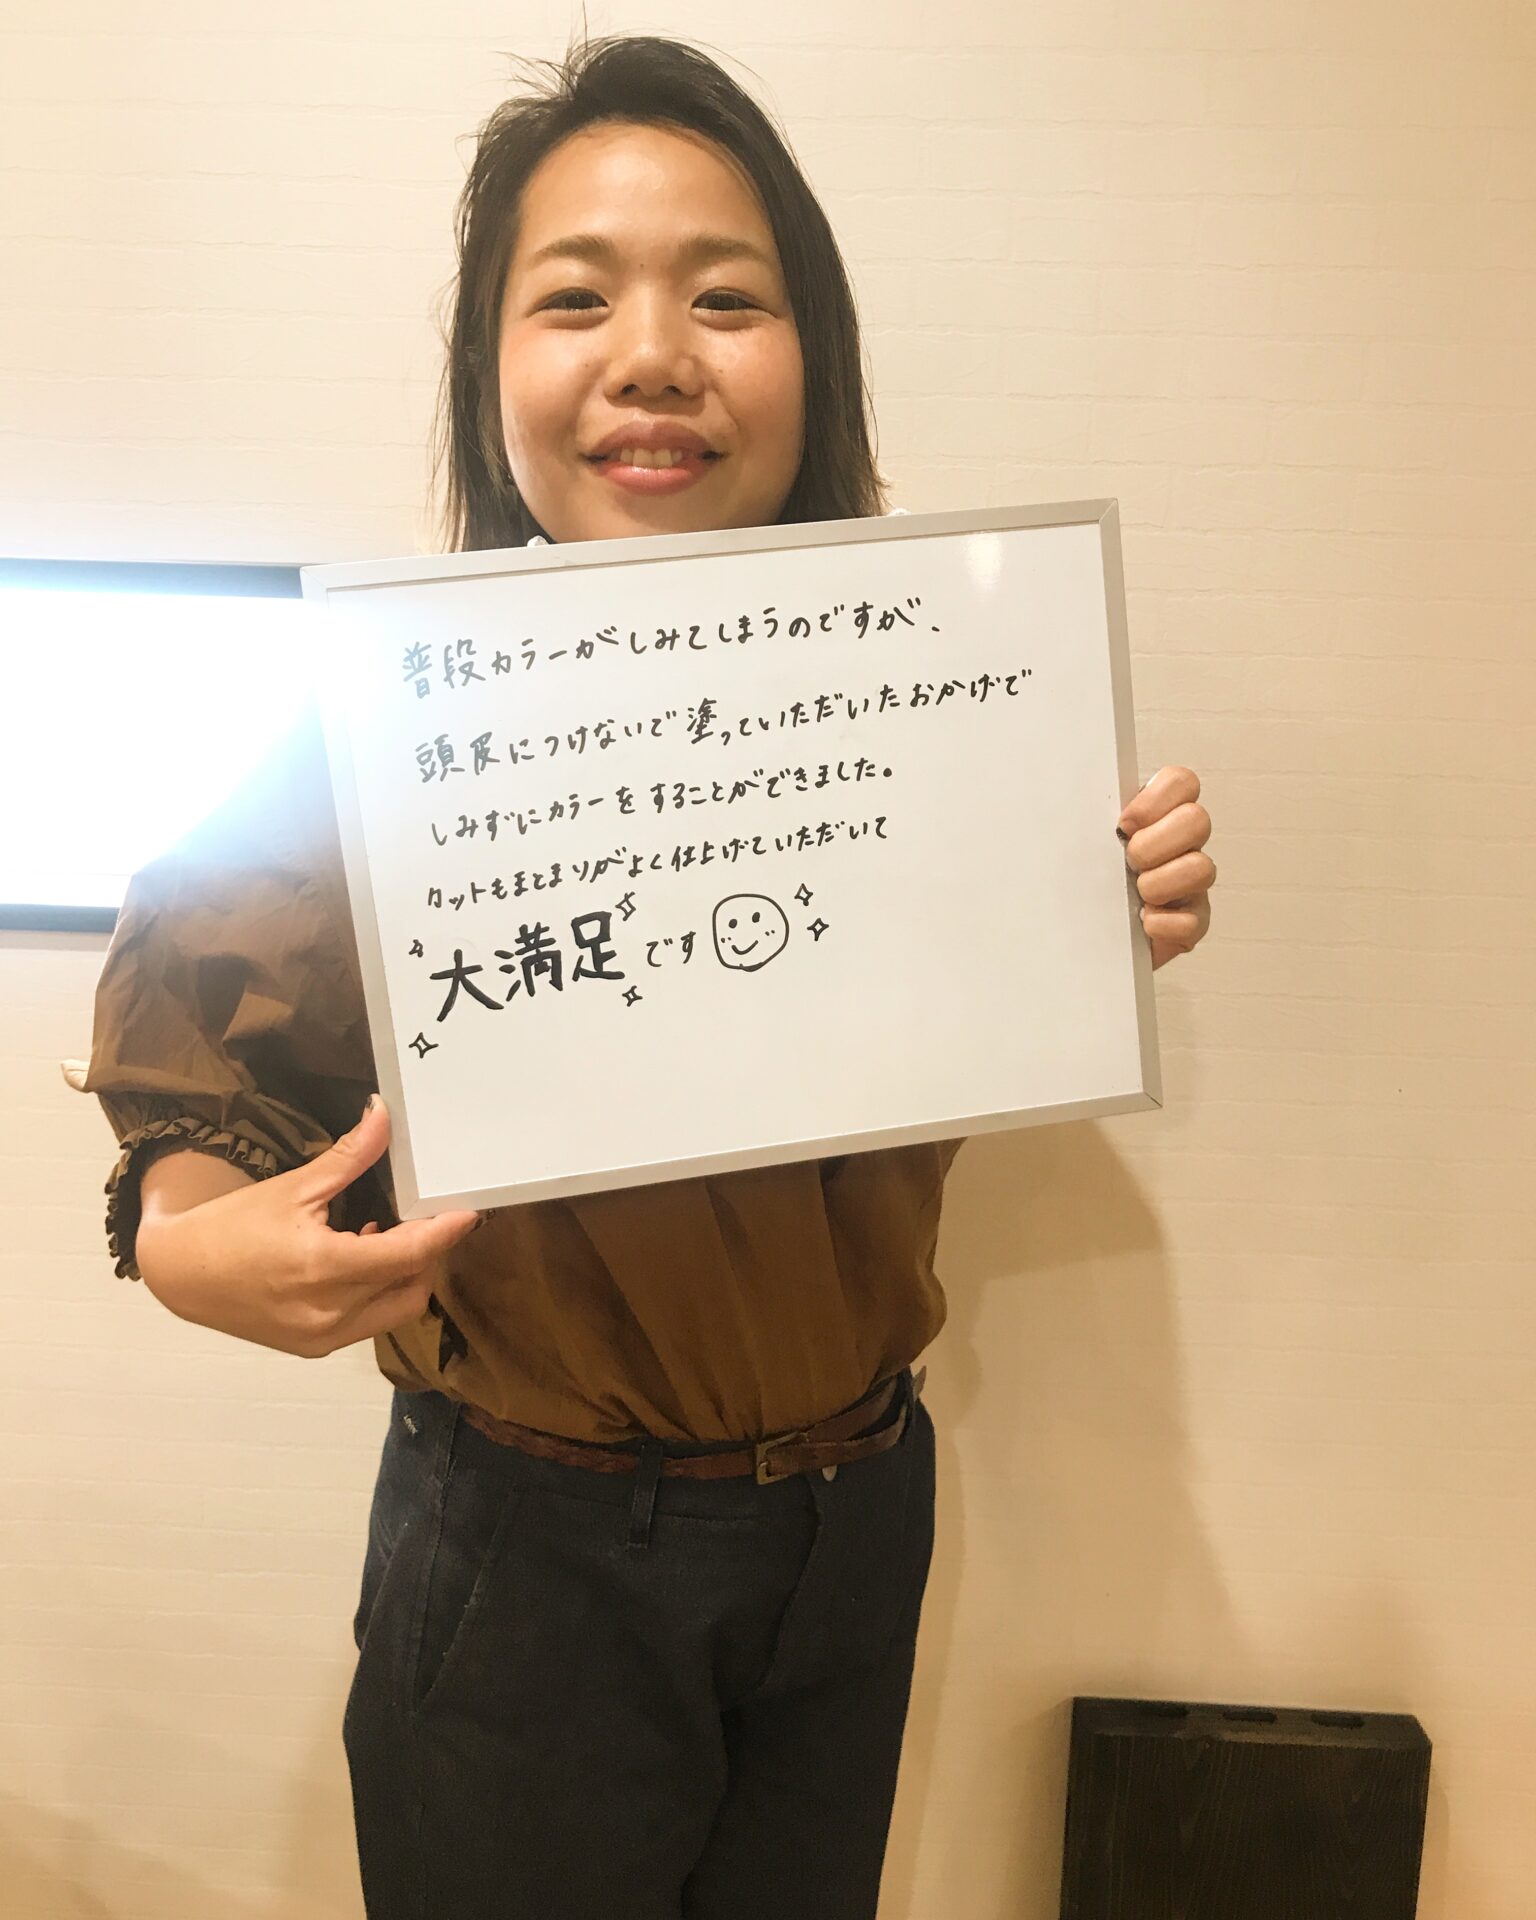 普段カラーがしみてしまうのですが、
頭皮につけないで塗っていただいたおかげで
しみずにカラーをすることができました。
カットもまとまりがよく仕上げていただいて
大満足です